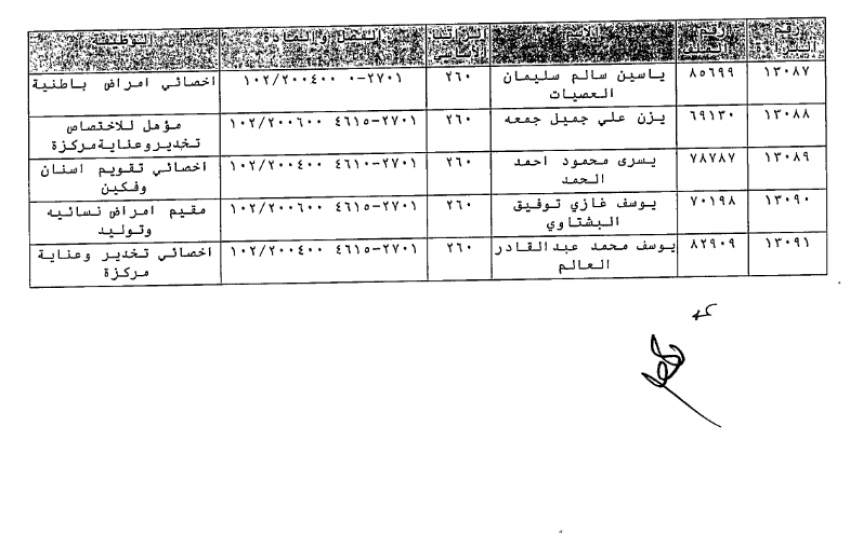 رقم الشاغرة رقم الملف الاسم الراتب الاساسي الفصل والمادة الوظيفة
١٣٠٨٧ ٨٥٦٩٩ ياسين سالم سليمان ٢٦٠ ٢٧٠١-٠ ١٠٢/٢٠٠٤٠٠ اخصائي امراض باطنية
العصيات
١٣٠٨٨ ٦٩١٣٠ يزن علي جميل جمعه ٢٦٠ ٢٧٠١-٤٦١٥ ١٠٢/٢٠٠٦٠٠ مؤهل للاختصاص
تخدير وعناية مركزة
١٣٠٨٩ ٧٨٧٨٧ يسرى محمود احمد ٢٦٠ ٢٧٠١-٤٦١٠ ١٠٢/٢٠٠٤٠٠ اخصائي تقويم اسنان
الحمد وفكين
١٣٠٩٠ ٧٠١٩٨ يوسف غازي توفيق ٢٦٠ ٢٧٠١-٤٦١٥ ١٠٢/٢٠٠٦٠٠ مقيم امراض نسائيه
البشتاوي وتوليد
١٣٠٩١ ٨٢٩٠٩ يوسف محمد عبدالقادر ٢٦٠ ٢٧٠١-٤٦١٥ ١٠٢/٢٠٠٤٠٠ اخصائي تخدير وعناية
العالم مركزة